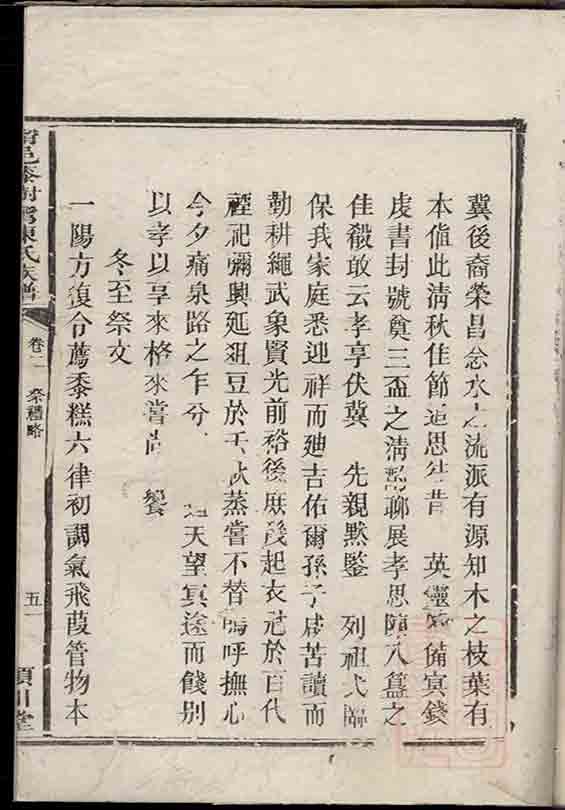 冀後裔榮昌念水之流派有源知木之枝葉有
本值此清秋佳節追思生昔 英靈 備冥錢
虔書封號奠三盃之清 聊展孝思陳八簋之
佳殽敢云孝享伏冀 先親默鑒 列祖式臨
保我家庭悉迎祥而廸吉佑爾孫子咸苦讀而
勤耕繩武象賢光前裕後庶幾起衣冠於百代
禋祀彌興延俎豆於千秋蒸嘗不替嗚呼撫心
今夕痛泉路之乍分 天望冥途而餞別
以孝以享來格來嘗尚 饗
冬至祭文
一陽方復令薦黍糕六律初調氣飛葭管物本
陳氏族譜
卷二 祭禮略
五
潁川堂